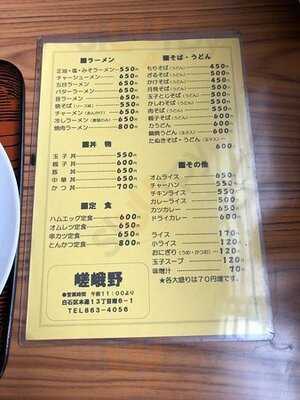 ■ラーメン
正油・塩・みそラーメン 550円
チャーシューメン 650円
五目ラーメン 650円
バターラーメン 600円
昔ラーメン 550円
焼きそば(ソース味) 550円
チャーメン(あんかけ) 650円
冷しラーメン(夏期のみ) 650円
焼肉ラーメン 800円
■丼物
玉子丼 550円
親子丼 600円
豚丼 650円
中華丼 650円
かつ丼 700円
■定食
ハムエッグ定食 600円
オムレツ定食 650円
串カツ定食 650円
とんかつ定食 800円
嵯峨野
●営業時間 午前11:00より
白石区本通13丁目南6-1
TEL863-4056
■そば・うどん
もりそば(うどん) 450円
ざるそば(うどん) 500円
かけそば(うどん) 450円
月見そば(うどん) 500円
玉子とじそば(うどん) 550円
かしわそば(うどん) 550円
肉そば(うどん) 550円
親子そば(うどん) 600円
力うどん 600円
鍋焼うどん
たぬきそば・うどん
■その他
オムライス 650円
チャーハン 550円
チキンライス 550円
カレーライス 600円
カツカレー 750円
ドライカレー 600円
ライス 170円
小ライス 120円
おにぎり(うめ・かつお) 120円
玉子スープ 120円
味噌汁 70円
★各大盛りは70円増です。